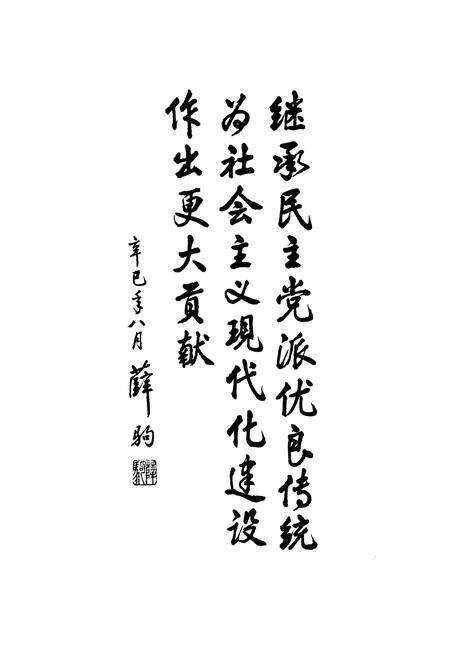 继承民主党派优良传统
为社会主义現代化建设
作出更大贡献
辛巳年八月 薛驹
薛驹